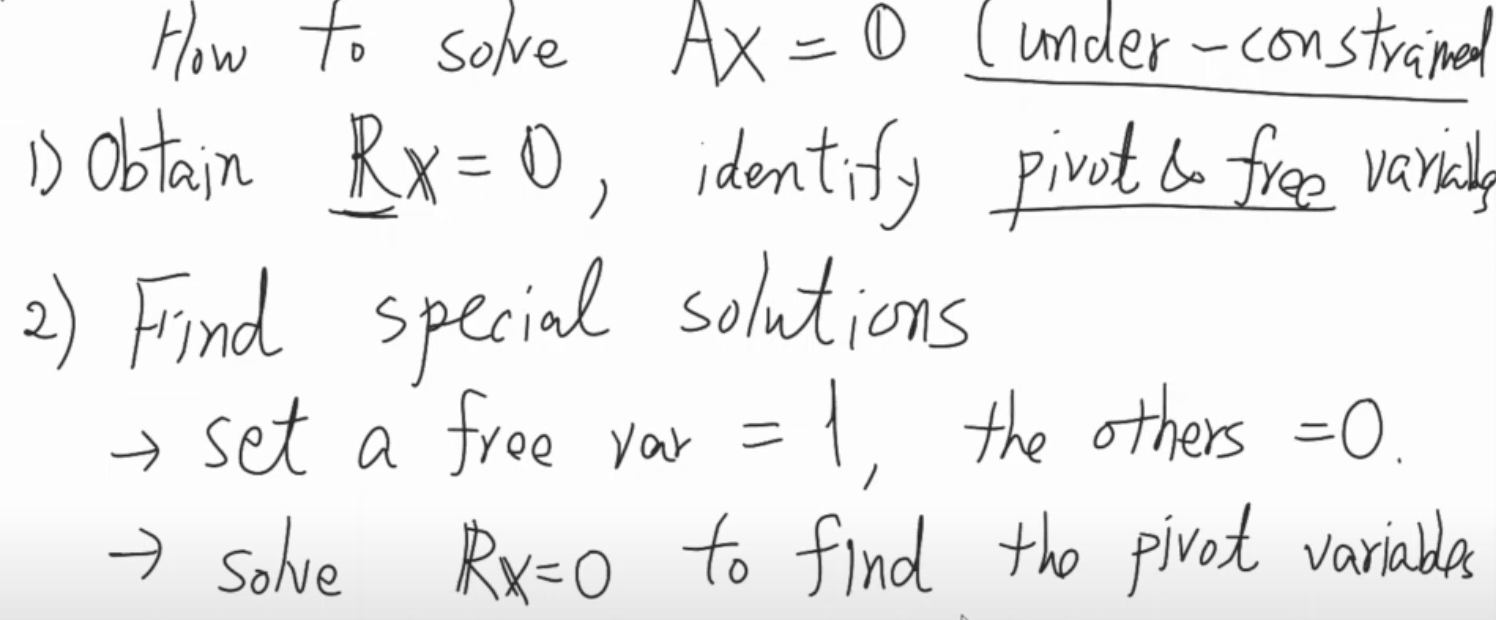 How to solve Ax = 0 (under-constrained
1) Obtain Rx = 0, identify pivot & free variables
2) Find special solutions
→ set a free var = 1, the others = 0.
→ solve Rx=0 to find the pivot variables